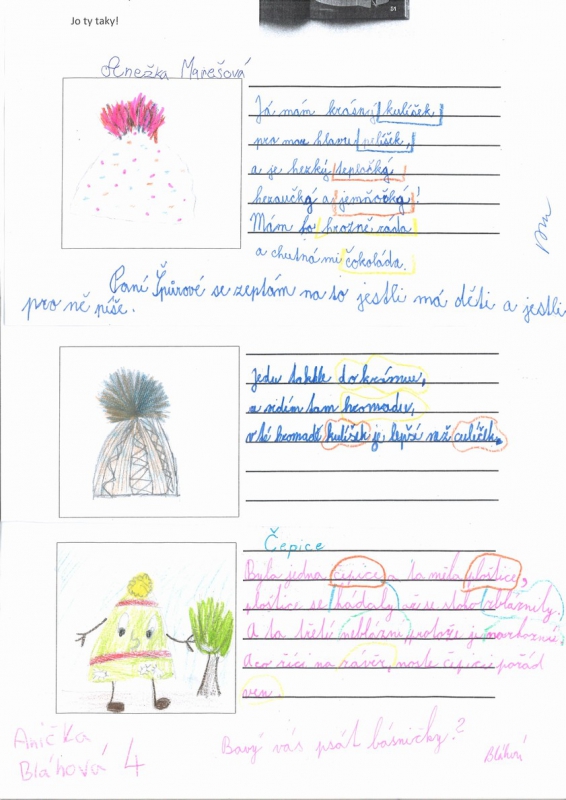 51
Jo ty taky!
Anežka Marešová
Já mám krásný kulíšek
pro mou hlavu pelíšek,
a je hezký teploučký
hezoučký a jemňoučký!
Mám ho hrozně ráda
a chutná mi čokoláda.
Paní Špůrové se zeptám na to jestli má děti a jestli
pro ně píše.
Jedu takhle do krámu,
a vidím tam hromadu,
v té hromadě kulíšek je lepší než culíček.
Čepice
Byla jedna čepice a ta měla ploštice,
ploštice se hádaly až se z toho zbláznily.
A ta třetí neblázní protože je
Aco říci na závěr, noste čepici pořád
ven.
Anička
Bláhová 4
Baví vás psát básničky?
Bláhová